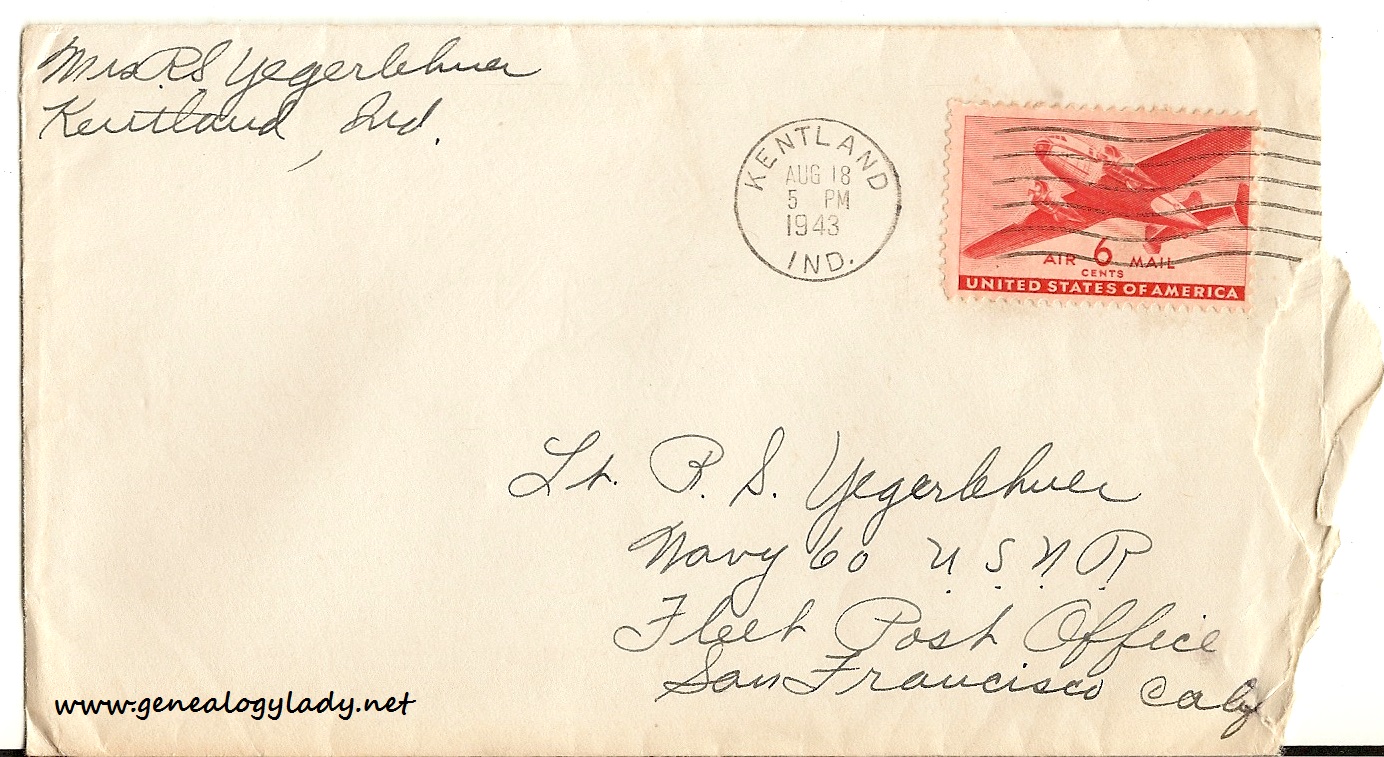 Mrs. R S Yegerlehner
Kentland, Ind.
KENTLAND
AUG 18
5 PM
1943
IND.
AIR 6 MAIL
CENTS
UNITED STATES OF AMERICA
Lt. R. S. Yegerlehner
Navy 60 U.S.N.R.
Fleet Post Office
San Francisco Calif
www.genealogylady.net